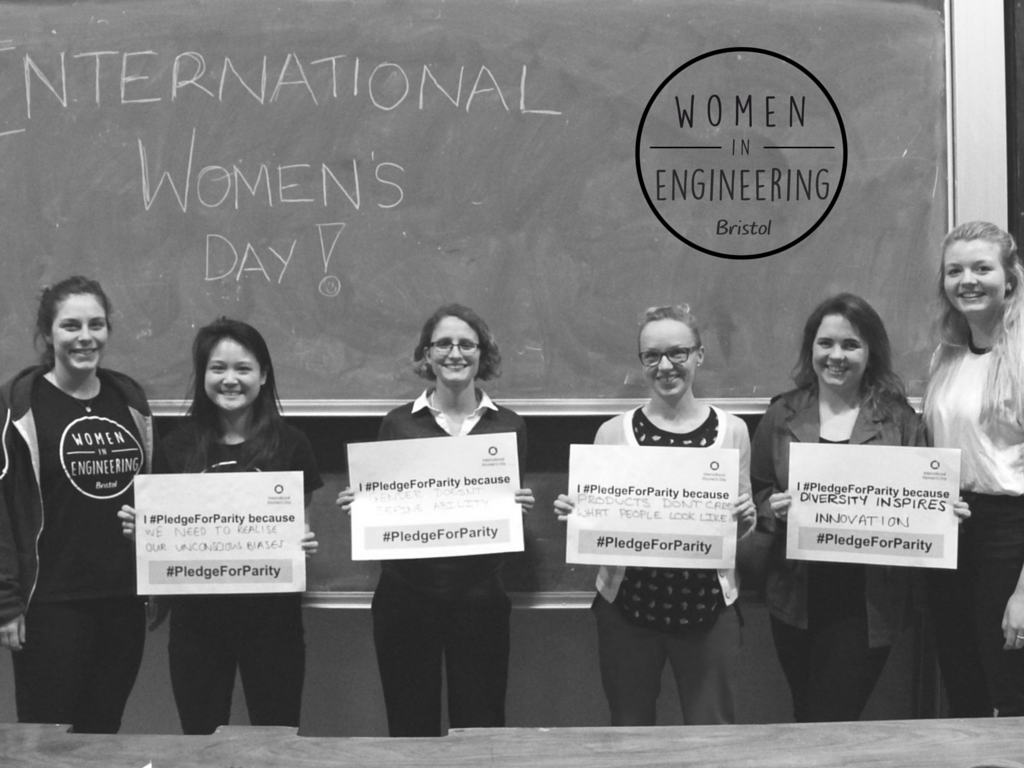 INTERNATIONAL
WOMEN'S
DAY!
WOMEN
IN
ENGINEERING
Bristol
WOMEN
IN
ENGINEERING
International
Women's Day
I #PledgeForParity because
WE NEED TO REALISE
OUR UNCONSCIOUS BIASES
#PledgeForParity
International
Women's Day
I #PledgeForParity because
GENDER DOESN'T
DEFINE ABILITY
#PledgeForParity
International
Women's Day
I #PledgeForParity because
PRODUCTS DON'T CARE
WHAT PEOPLE LOOK LIKE
#PledgeForParity
International
Women's Day
I #PledgeForParity because
DIVERSITY INSPIRES
INNOVATION
#PledgeForParity